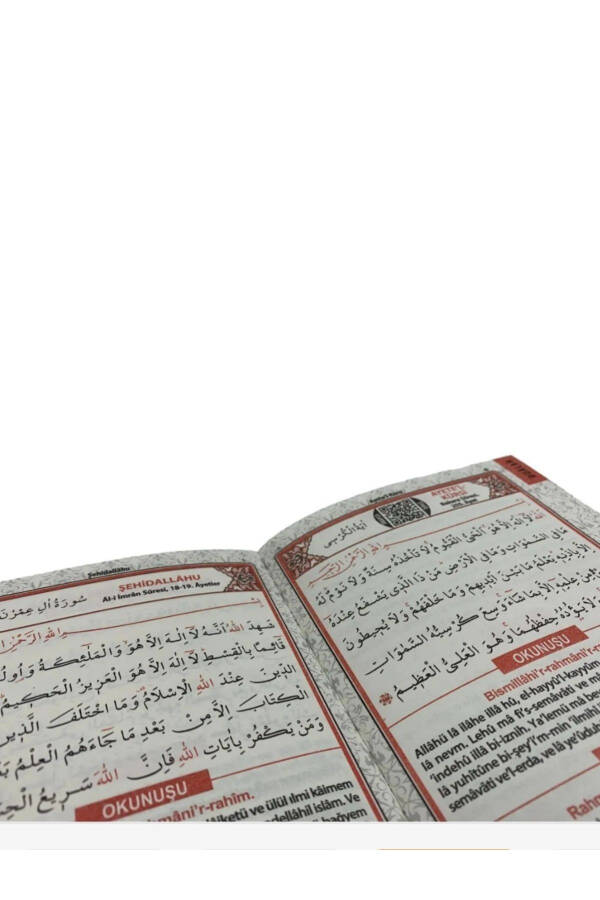 Şehidallâhu
ŞEHİDALLÂHU
Al-i İmrân Sûresi, 18-19. Âyetler
سُورَةُ اٰلِ عِمْرٰنَ
شَهِدَ اللّٰهُ اَنَّهُ لَٓا اِلٰهَ اِلَّا هُوَ وَالْمَلٰٓئِكَةُ وَاُولُوا
قَٓائِمًا بِالْقِسْطِ لَٓا اِلٰهَ اِلَّا هُوَ الْعَزِيزُ الْحَكِيمُ
الدِّينَ عِنْدَ اللّٰهِ الْاِسْلَامُ وَمَا اخْتَلَفَ الَّذِينَ
الْكِتَابَ اِلَّا مِنْ بَعْدِ مَا جَٓاءَهُمُ الْعِلْمُ
وَمَنْ يَكْفُرْ بِاٰيَاتِ اللّٰهِ فَاِنَّ اللّٰهَ سَرِيعُ
OKUNUŞU
r-rahîm.
ve ülül ılmi kâimem
islâm. Ve
bağyem
Ayete'l Kürsi
AYETE'L
KÜRSÎ
Bakara Sûresi,
255. Âyet
اٰيَةُ الْكُرْسِى
اَللّٰهُ لَٓا اِلٰهَ اِلَّا هُوَ الْحَىُّ الْقَيُّومُ لَا تَأْخُذُهُ سِنَةٌ وَلَا نَوْمٌ لَهُ
مَا فِى السَّمٰوَاتِ وَمَا فِى الْاَرْضِ مَنْ ذَا الَّذِى يَشْفَعُ عِنْدَهُ
اِلَّا بِاِذْنِهِ يَعْلَمُ مَا بَيْنَ اَيْدِيهِمْ وَمَا خَلْفَهُمْ وَلَا يُحِيطُونَ
مِنْ عِلْمِهِ اِلَّا بِمَا شَٓاءَ وَسِعَ كُرْسِيُّهُ السَّمٰوَاتِ
وَلَا يَؤُدُهُ حِفْظُهُمَا وَهُوَ الْعَلِىُّ الْعَظِيمُ
OKUNUŞU
Bismillâhi'r-rahmâni'r-
Allâhü lâ ilâhe illâ hû, el-hayyü'l-kayyûm
lâ nevm. Lehû mâ fi's-semâvâti ve mâ
'indehû illâ bi-iznih. Ya'lemü mâ be
lâ yuhîtûne bi-şey'i'm-min 'ilmihî
semâvâti ve'l-erda, ve lâ ye'ûduh